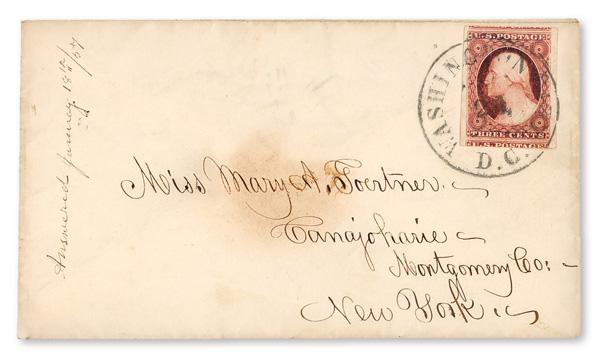 Answered January 18th/57
U.S. POSTAGE
THREE CENTS
U.S. POSTAGE
WASHINGTON
D.C.
Miss Mary A. Toertner.
Canajoharie
Montgomery Co:
New York.